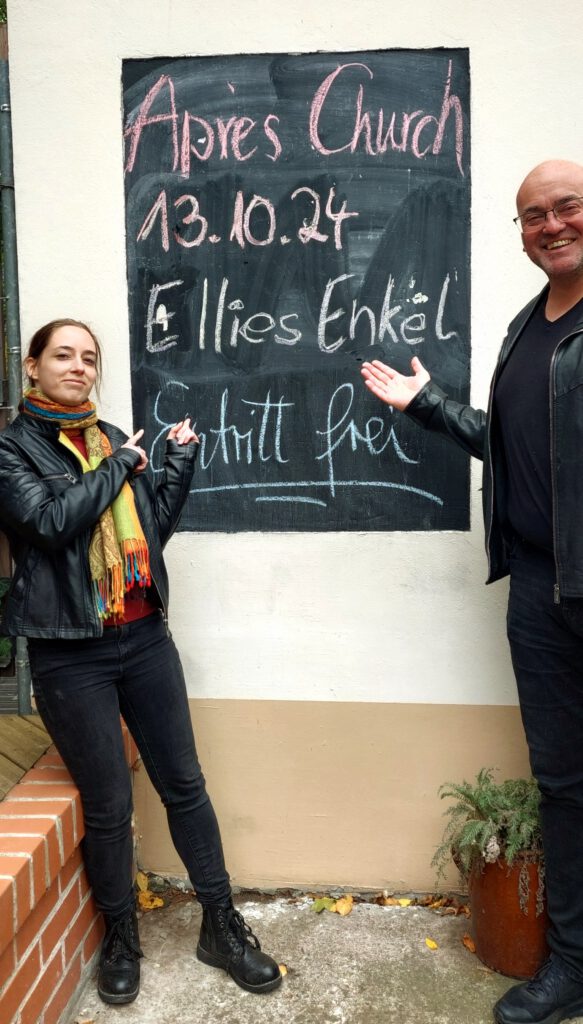 Après Church
13.10.24
Ellies Enkel
Eintritt frei